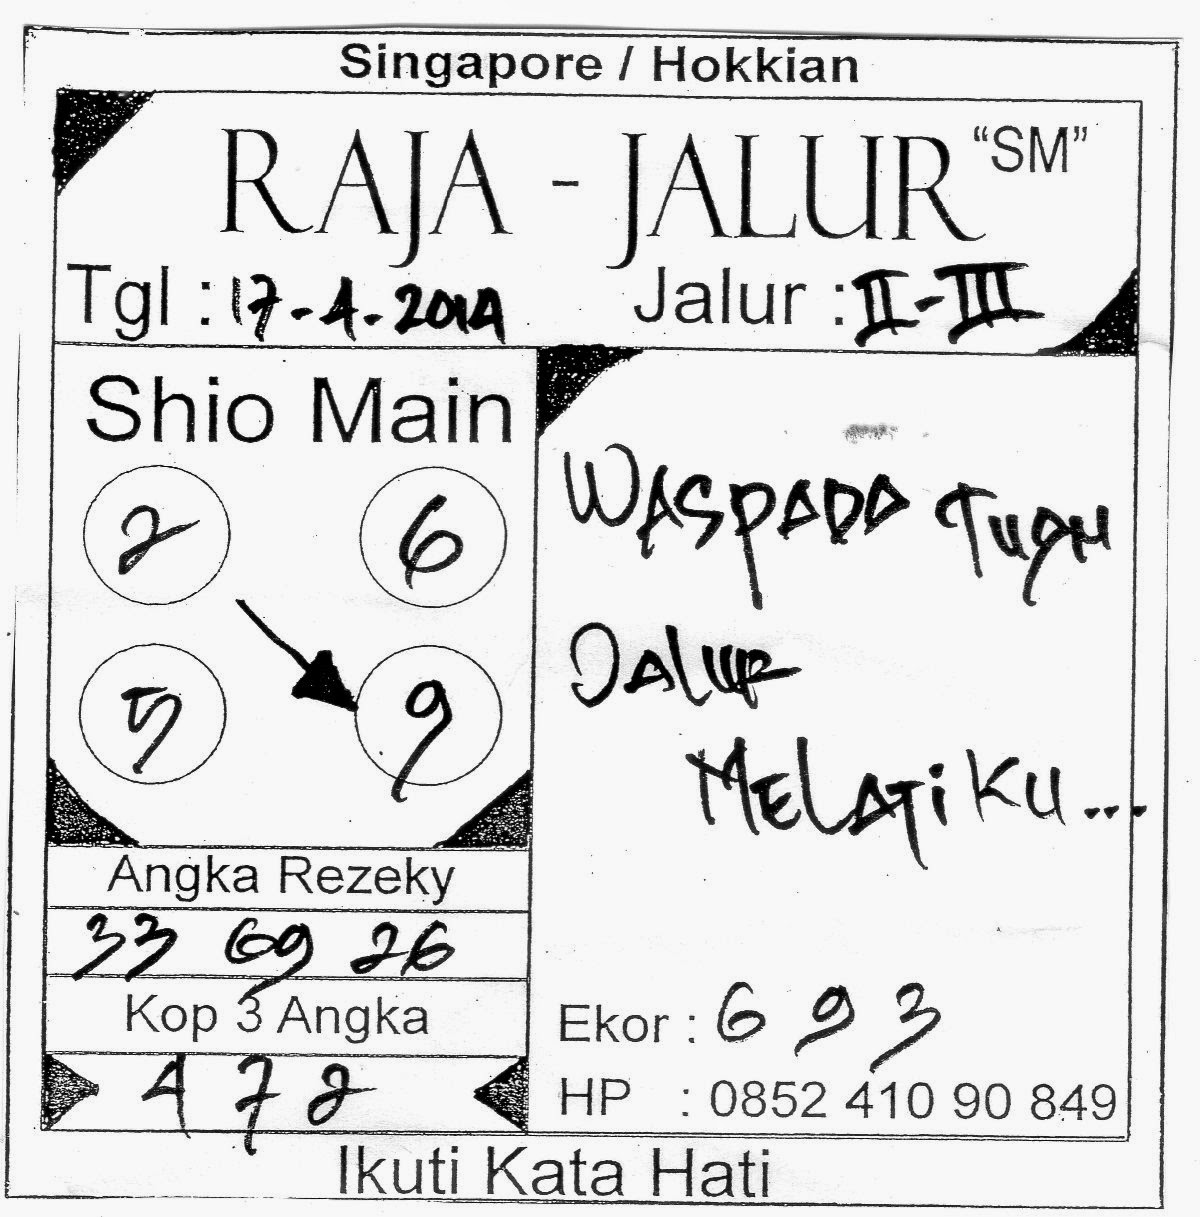 Singapore / Hokkian
RAJA - JALUR "SM"
Tgl : 17-4-2014 Jalur : II-III
Shio Main
2 6
5 9
WASPADA TUAN
JALUR
MELATiKU...
Angka Rezeky
33 69 26
Kop 3 Angka
4 7 2
Ekor : 6 9 3
HP : 0852 410 90 849
Ikuti Kata Hati